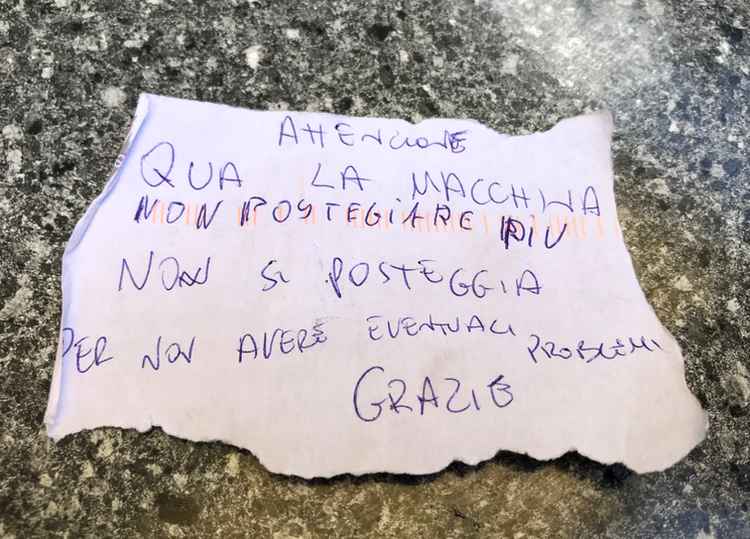 ATTENZIONE
QUA LA MACCHINA
NON POSTEGIARE PIU
NON SI POSTEGGIA
PER NON AVERE EVENTUALI PROBLEMI
GRAZIE